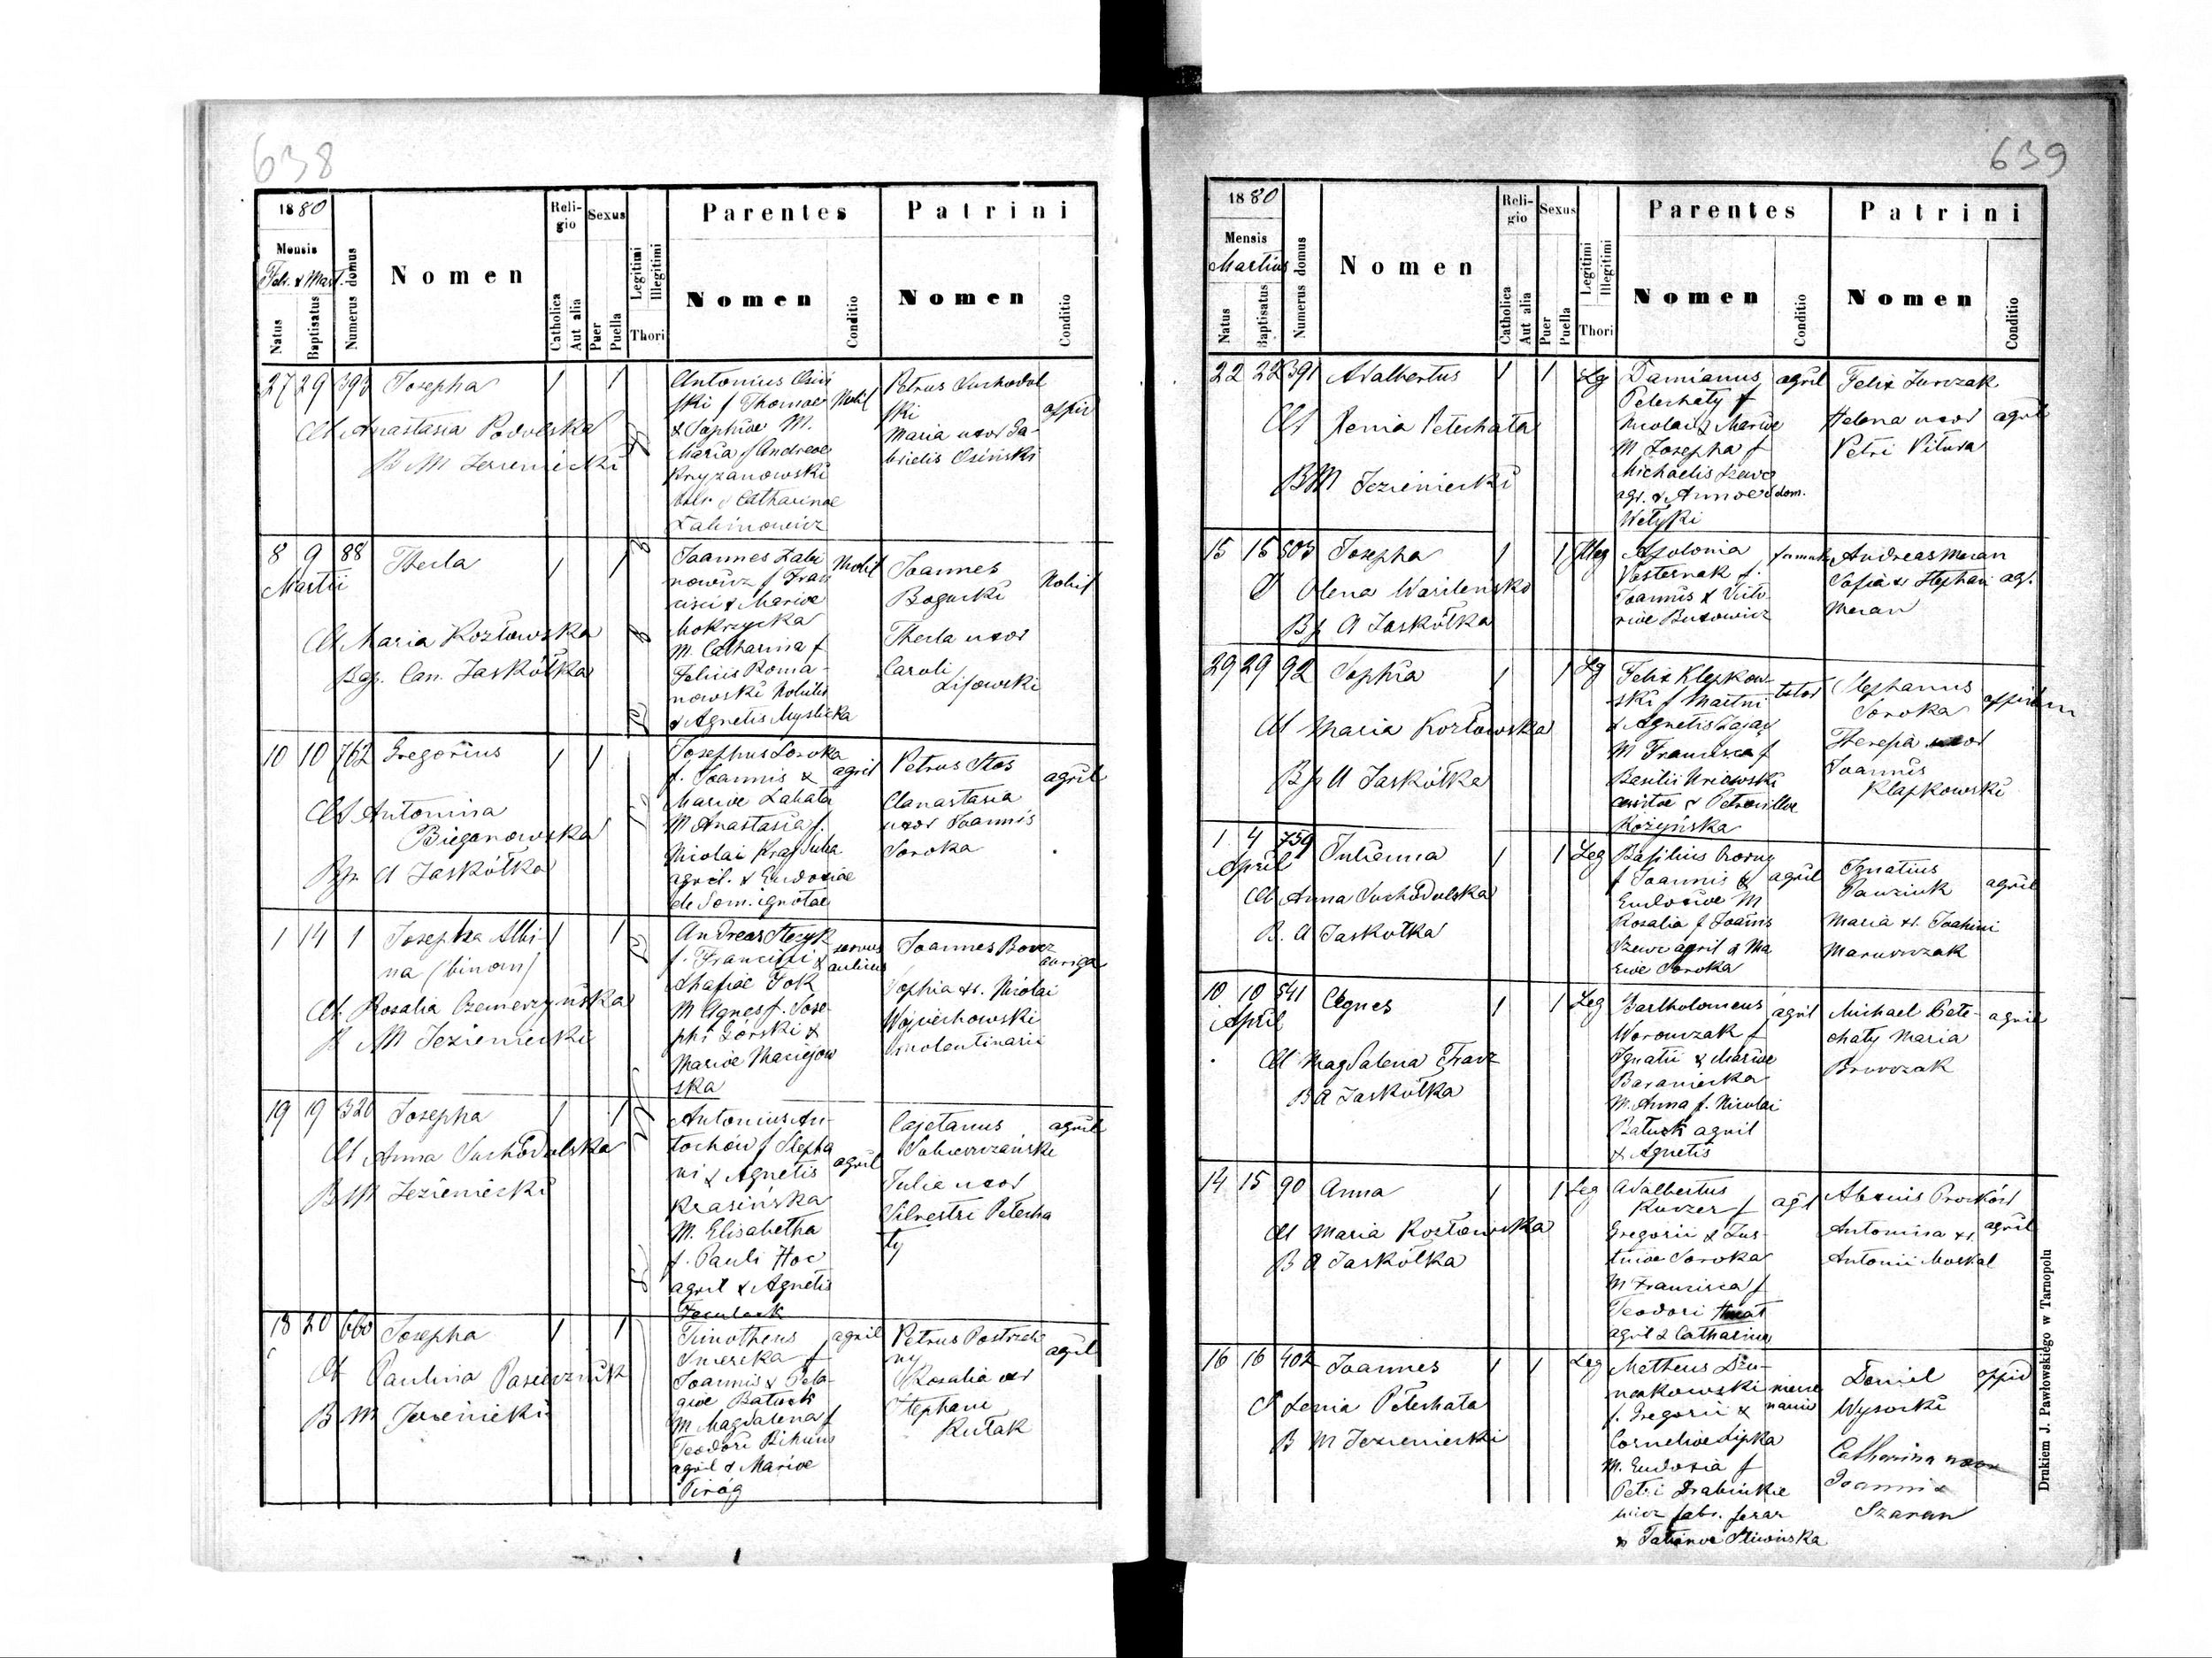 638
1880
Mensis
Febr. & Mart.
Natus
Baptisatus
Numerus domus
Nomen
Religio
Catholica
Aut alia
Sexus
Puer
Puella
Legitimi
Illegitimi
Thori
Parentes
Nomen
Conditio
Patrini
Nomen
Conditio
27 29 393 Josepha 1 1
Obst Anastasia Podolska
B M Jezienicki
Antonius Osiń
ski f Thomae
& Sophiae M.
Maria f Andreae
Kryzanowski
& Catharinae
Łabinowicz
Nobil
Petrus Suchodol
ski
Maria uxor Ga-
brielis Osiński
oppid
8 9 88 Thecla 1 1
Martii
Obst Maria Kozłowska
Bap. Can. Jaskółka
Joannes Łabi
nowicz f Fran
cisci & Mariae
Mokrzycka
M. Catharina f
Felicis Roma-
nowski Nobilis
& Agnetis Myslicka
Nobil
Joannes
Bogucki
Thecla uxor
Caroli
Lisowski
Nobil
10 10 762 Gregorius 1 1
Obst Antonina
Bieganowska
Bap. A Jaskółka
Josephus Soroka
f. Joannis &
Mariae Łahata
M Anastasia f.
Nicolai
agril. & Eudoxiae
de Dom. ignotae
agril
Petrus Stos
Anastasia
uxor Joannis
Soroka
agril
1 14 1 Josepha Albi-
na (binom) 1 1
Obst. Rosalia Czemerzyńska
B M Jezienicki
Andreas Stezyk
f. Francisci &
Sophiae Fok
M Agnes f. Jose-
phi Górski &
Mariae Maciejow
ska
servus
aulicus
Joannes Borcz
Sophia ux. Nicolai
Wojciechowski
molentinarii
auriga
19 19 320 Josepha 1 1
Obst Anna Suchodolska
B M Jezienicki
Antonius An-
tochów f Stepha
ni & Agnetis
Krasińska
M. Elisabetha
f. Pauli Hoc
agril & Agnetis
agril
Cajetanus
Julia uxor
Silvestri Petecha
ty
agril
18 20 660 Josepha 1 1
Obst Paulina Pasiecznik
B M Jezienicki
Timotheus
Smereka f
Joannis & Pela-
giae Batiuch
M Magdalena f
Teodori Bihun
agril & Mariae
Piróg
agril
Petrus Postrzeh
ny
Rosalia uxr
Stephani
Rutak
agril
639
1880
Mensis
Martius
Natus
Baptisatus
Numerus domus
Nomen
Religio
Catholica
Aut alia
Sexus
Puer
Puella
Legitimi
Illegitimi
Thori
Parentes
Nomen
Conditio
Patrini
Nomen
Conditio
22 22 391 Adalbertus 1 1 Lg
Obst Xenia Petechata
B M Jezienicki
Damianus
Petechaty f
Nicolai & Mariae
M Josepha f
Michaelis Szewc
agr. & Annae dom.
Wełyki
agril
Felix Jurczak
Helena uxor
Petri Pitura
agril
15 15 503 Josepha 1 1 Illeg
O Olena Wasileńska
Bp A Jaskółka
Apolonia
Pasternak f.
Joannis & Victo-
riae Butowicz
famula
Andreas Maran
Sofia ux Stephani
Maran
agr.
29 29 92 Sophia 1 1 Lg
Obst Maria Kozłowska
Bp A Jaskółka
Felix Klepkow-
ski f Martini
& Agnetis Zając
M Francisca f
Basilii
& Petronillae
Rożyńska
sutor
Stephanus
Soroka
Theresia uxor
Joannis
Klapkowski
oppidan
1 4 759 Julianna 1 1 Leg
April
Obst Anna Suchodolska
B. A Jaskółka
Basilius Czorny
f Joannis &
Eudoxiae M
Rosalia f Joannis
Szewc agril & Ma
riae Soroka
agril
Ignatius
Pauziuk
Maria ux. Joahimi
Maruszczak
agril
10 10 541 Agnes 1 1 Leg
April
Obst Magdalena Tracz
B A Jaskółka
Bartholomeus
Woronczak f
Ignatii & Mariae
Baraniecka
M. Anna f. Nicolai
Batiuk agril
& Agnetis
agril
Michael Pete-
chaty Maria
Browczak
agril
14 15 90 Anna 1 1 Leg
Obst Maria Kozłowska
B A Jaskółka
Adalbertus
Kurzer f
Gregorii & Jus-
tinae Soroka
M Francisca f
Teodori Hnat
agril & Catharina
agl
Alexius Prockór
Antonina ux.
Antonii Moskal
agril
16 16 402 Joannes 1 1 Leg
O Xenia Petechata
B M Jezienicki
Mattheus Dzu-
makowski
f. Gregorii &
Corneliae Lipka
M. Eudoxia f
Petri Drabinkie
wicz fabr. ferrar
& Tatianae Sliwińska
Daniel
Wysocki
Catharina uxor
Joannis
Szaran
oppid
Drukiem J. Pawłowskiego w Tarnopolu